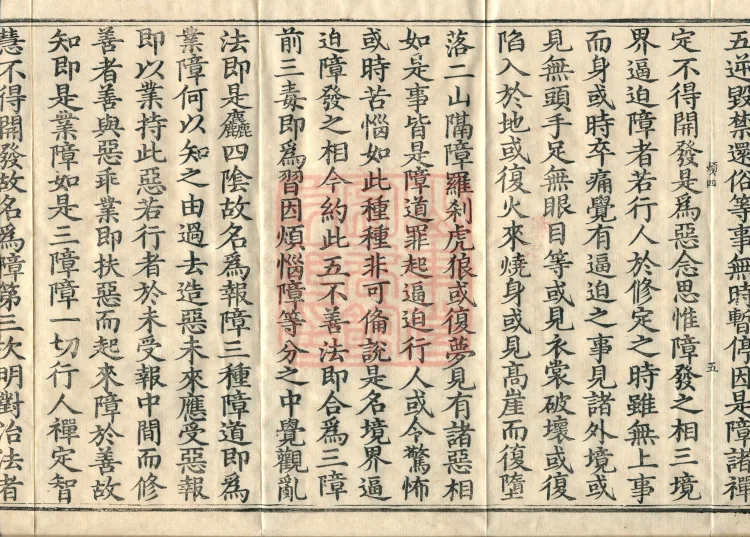 五逆毀禁還俗等事無時暫停因是障諸禪
定不得開發是爲惡念思惟障發之相三境
五
界逼迫障者若行人於修定之時雖無上事
而身或時卒痛覺有逼迫之事見諸外境或
見無頭手足無眼目等或見衣裳破壞或復
陷入於地或復火來燒身或見高崖而復墮
落二山隔障羅刹虎狼或復夢見有諸惡相
如是事皆是障道罪起逼迫行人或令驚怖
或時苦惱如此種種非可備說是名境界逼
迫障發之相今約此五不善法即合爲三障
前三毒即爲習因煩惱障等分之中覺觀亂
法即是麤四陰故名爲報障三種障道即爲
業障何以知之由過去造惡未來應受惡報
即以業持此惡若行者於未受報中間而修
善者善與惡乖業即扶惡而起來障於善故
知即是業障如是三障障一切行人禪定智
慧不得開發故名爲障第三次明對治法者